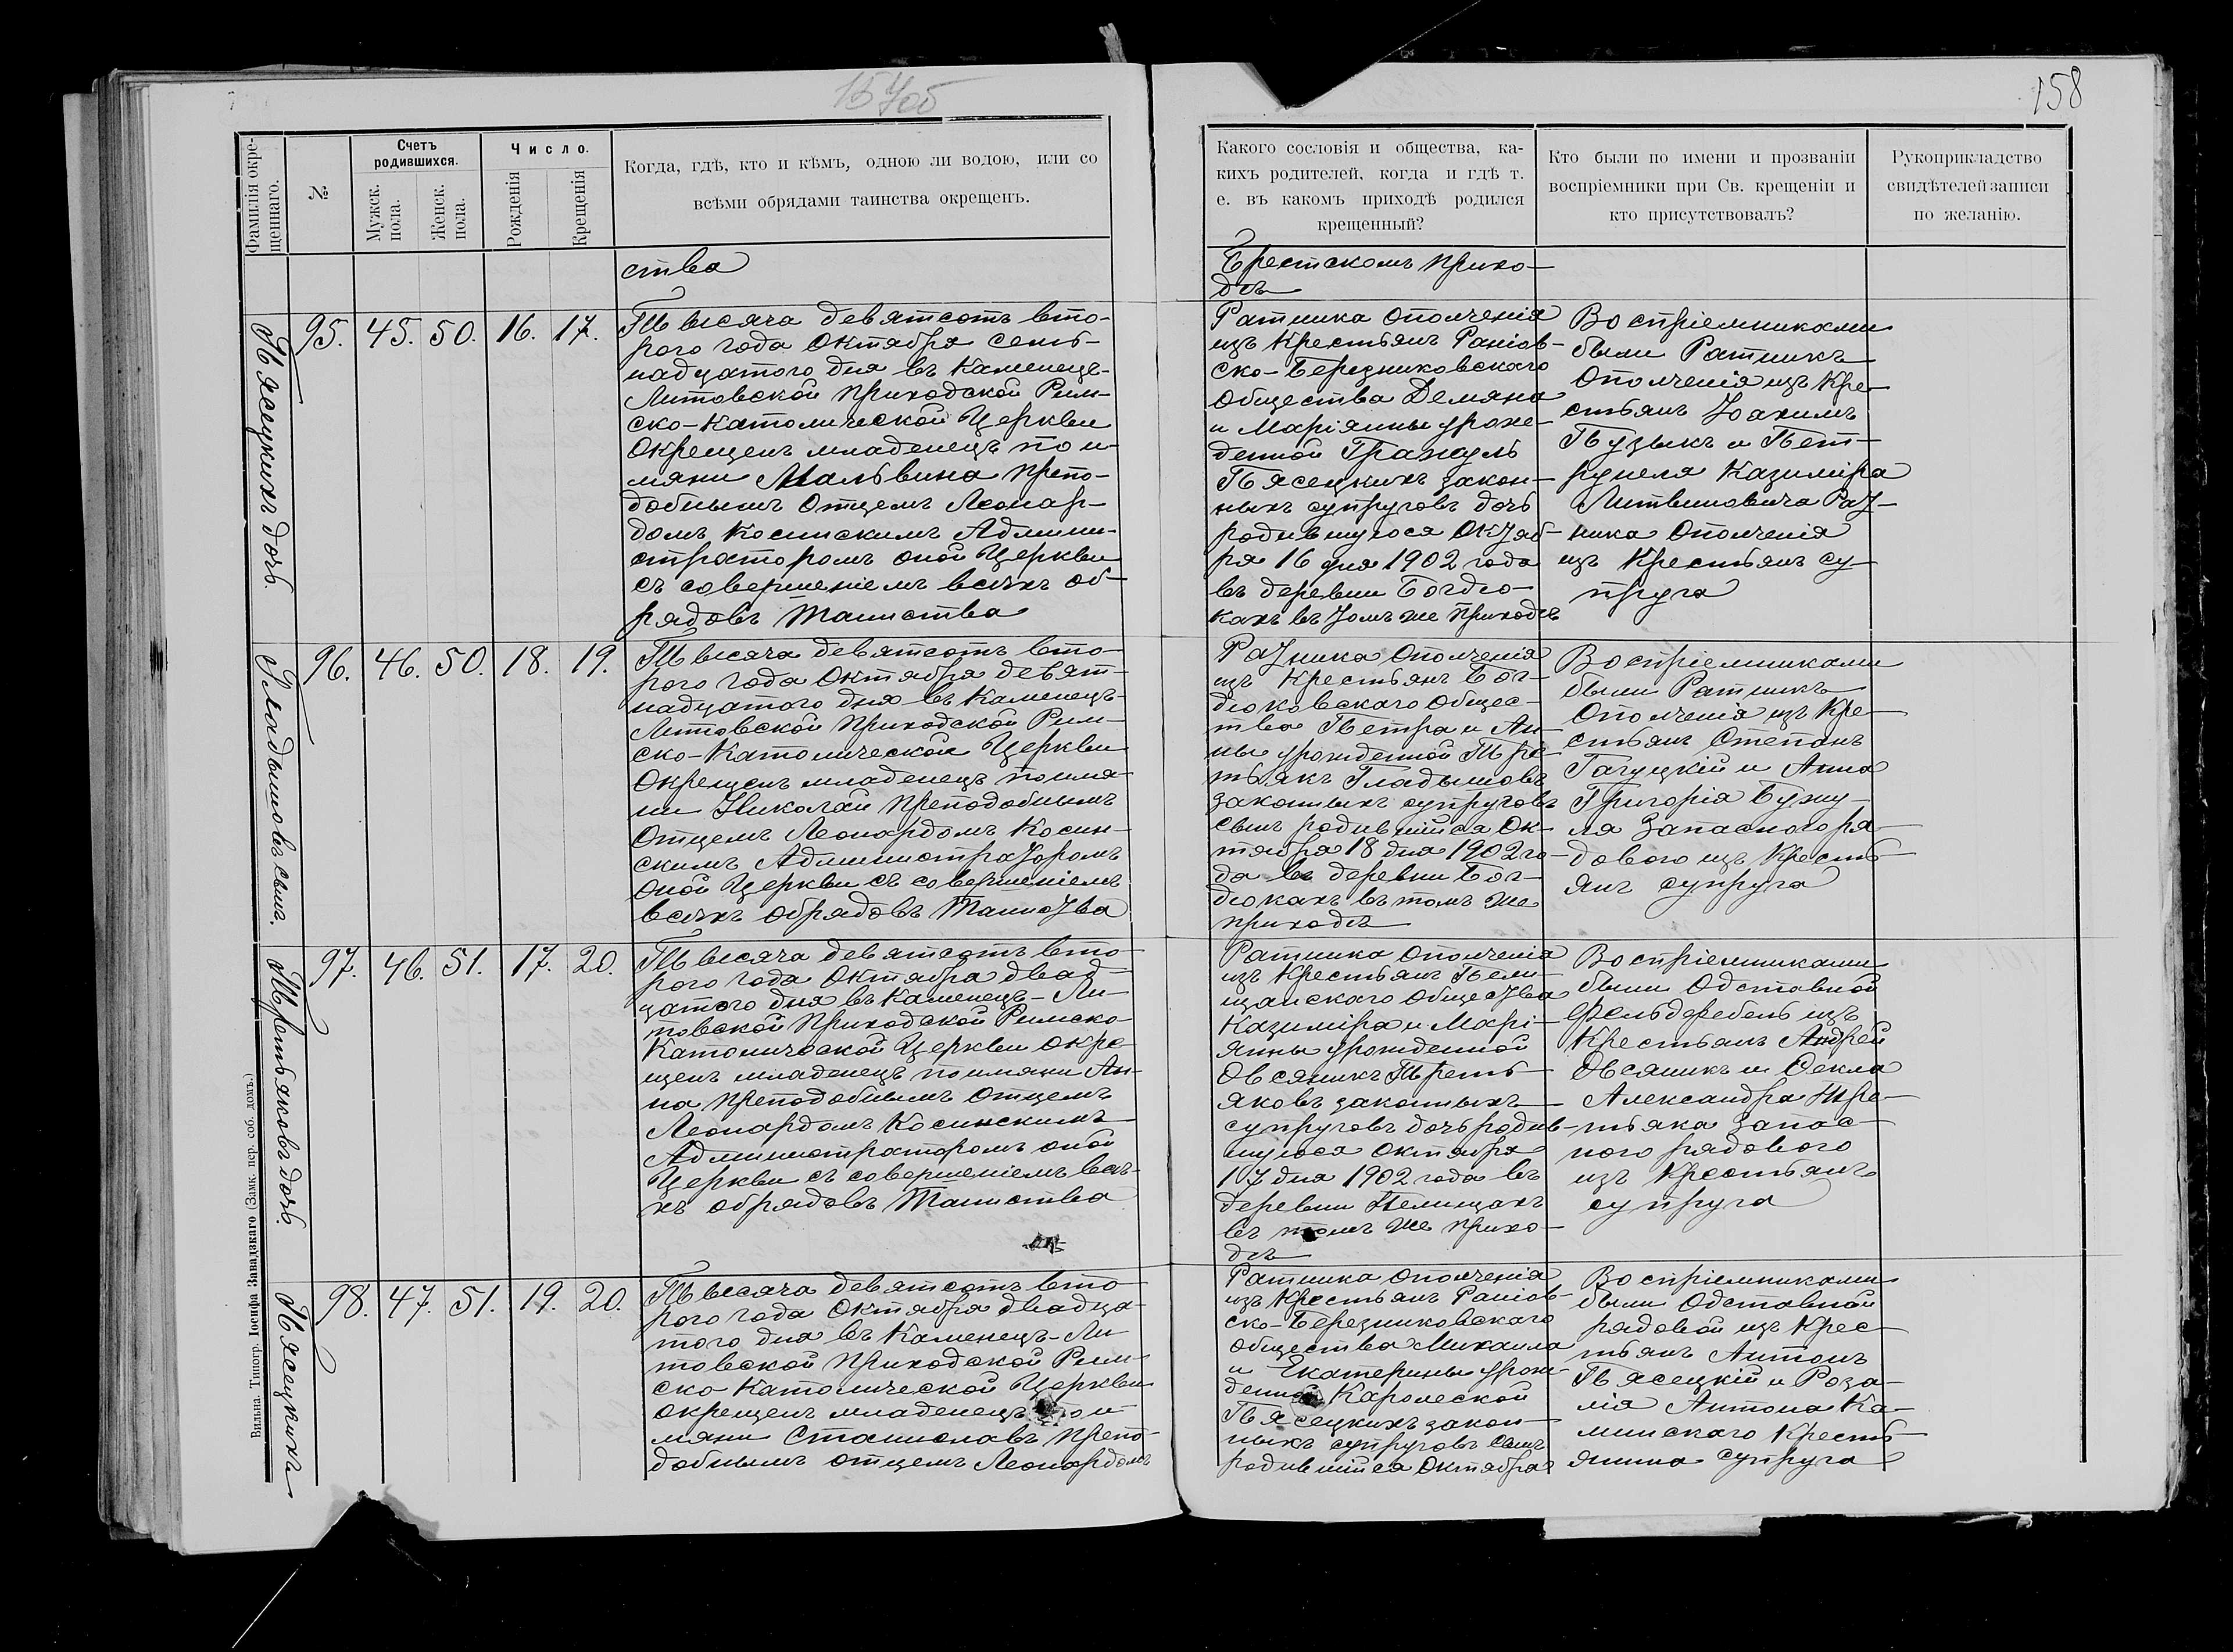 157об
158
Фамилія окре-
щеннаго.
№
Счетъ
родившихся.
Мужск.
пола.
Женск.
пола.
Число.
Рожденія
Крещенія
Когда, гдѣ, кто и кѣмъ, одною ли водою, или со
всѣми обрядами таинства окрещенъ.
Какого сословія и общества, ка-
кихъ родителей, когда и гдѣ т.
е. въ какомъ приходѣ родился
крещенный?
Кто были по имени и прозваніи
воспріемники при Св. крещеніи и
кто присутствовалъ?
Рукоприкладство
свидѣтелей записи
по желанію.
ства
Брестскомъ прихо-
дѣ
Пясецкихъ дочь.
95. 45. 50. 16. 17.
Тысяча девятсотъ вто-
рого года Октября семь-
надцатого дня въ Каменецъ-
Литовской приходской Рим-
ско-Католической Церкви
окрещенъ младенецъ по и-
мяни Мальвина препо-
добнымъ Отцемъ Леонар-
домъ Косинскимъ Админи-
стратором оной Церкви
съ совершеніемъ всѣхъ об-
рядовъ Таинства
Ратника ополченія
изъ Крестьянъ Раніов-
ско-Березниковскаго
Общества Демяна
и Маріянны урож-
денной Гражуль
Пясецкихъ закон-
ныхъ супруговъ дочь
родившуюся Октяб-
ря 16 дня 1902 года
въ деревни Богдю-
кахъ въ томъ же приходѣ
Воспріемниками
были Ратникъ
Ополченія изъ Кре-
стьянъ Іоахимъ
Пузыкъ и Пет-
рунеля Казиміра
Литвиновича Рат-
ника Ополченія
изъ Крестьянъ су-
пруга
Гладышовъ сынъ.
96. 46. 50. 18. 19.
Тысяча девятсотъ вто-
рого года Октября девят-
надцатого дня въ Каменецъ-
Литовской приходской Рим-
ско-Католической Церкви
окрещенъ младенецъ по имя-
ни Николай преподобнымъ
Отцемъ Леонардомъ Косин-
скимъ Администраторомъ
оной Церкви съ совершеніемъ
всѣхъ обрядовъ Таинства
Ратника ополченія
изъ Крестьянъ Бог-
дюковскаго Общес-
тва Петра и Ан-
ны урожденной Тре-
тьякъ Гладышовъ
законныхъ супруговъ
сынъ родившійся Ок-
тября 18 дня 1902 го-
да въ деревни Бог-
дюкахъ въ томъ же
приходѣ
Воспріемниками
были Ратникъ
Ополченія изъ Кре-
стьянъ Степанъ
Гачуцкій и Анна
Григорія Бужу-
ля Запасного ря-
дового изъ Кресть-
янъ супруга
Третьяковъ дочь.
97. 46. 51. 17. 20.
Тысяча девятсотъ вто-
рого года Октября двад-
цатого дня въ Каменецъ-Ли-
товской приходской Римско
Католической Церкви окре-
щенъ младенецъ по имяни Ан-
на преподобнымъ Отцемъ
Леонардомъ Косинскимъ
Администраторомъ оной
Церкви съ совершеніемъ всѣ-
хъ обрядовъ Таинства
Ратника ополченія
изъ Крестьянъ Пели-
щанскаго общества
Казиміра и Марі-
янны урожденной
Овсяникъ Треть-
яковъ законныхъ
супруговъ дочь родив-
шуюся Октября
17 дня 1902 года въ
деревни Пелищахъ
въ томъ же прихо-
дѣ
Воспріемниками
были Одставной
Фельдфебель изъ
Крестьянъ Андрей
Овсяникъ и Фекла
Александра Тре-
тьяка Запас-
ного рядового
изъ Крестьянъ
супруга
Пясецкихъ
98. 47. 51. 19. 20.
Тысяча девятсотъ вто-
рого года Октября двадца-
того дня въ Каменецъ-Ли-
товской приходской Рим-
ско-Католической Церкви
окрещенъ младенецъ по и-
мяни Станиславъ препо-
добнымъ отцемъ Леонардомъ
Ратника ополченія
изъ Крестьянъ Раніов-
ско-Березниковскаго
общества Михаила
и Екатерины урож-
денной Каролеской
Пясецкихъ закон-
ныхъ супруговъ сынъ
родившійся Октября
Воспріемниками
были Одставной
рядовой изъ Крес-
тьянъ Антонъ
Пясецкій и Роза-
лія Антона Ка-
минскаго Кресть-
янина супруга
Вильна. Типогр. Іосифа Завадзкаго (Замк. пер. соб. домъ.)